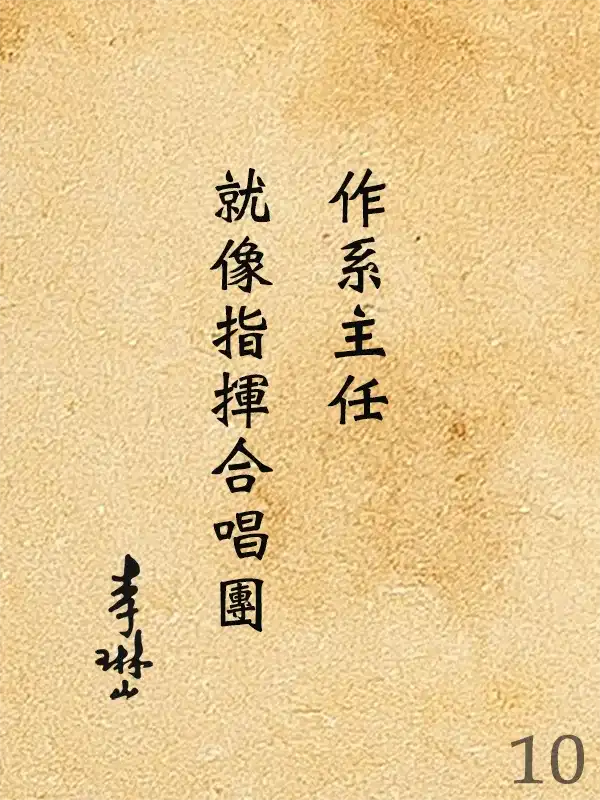 作系主任
就像指揮合唱團
李琳山
10